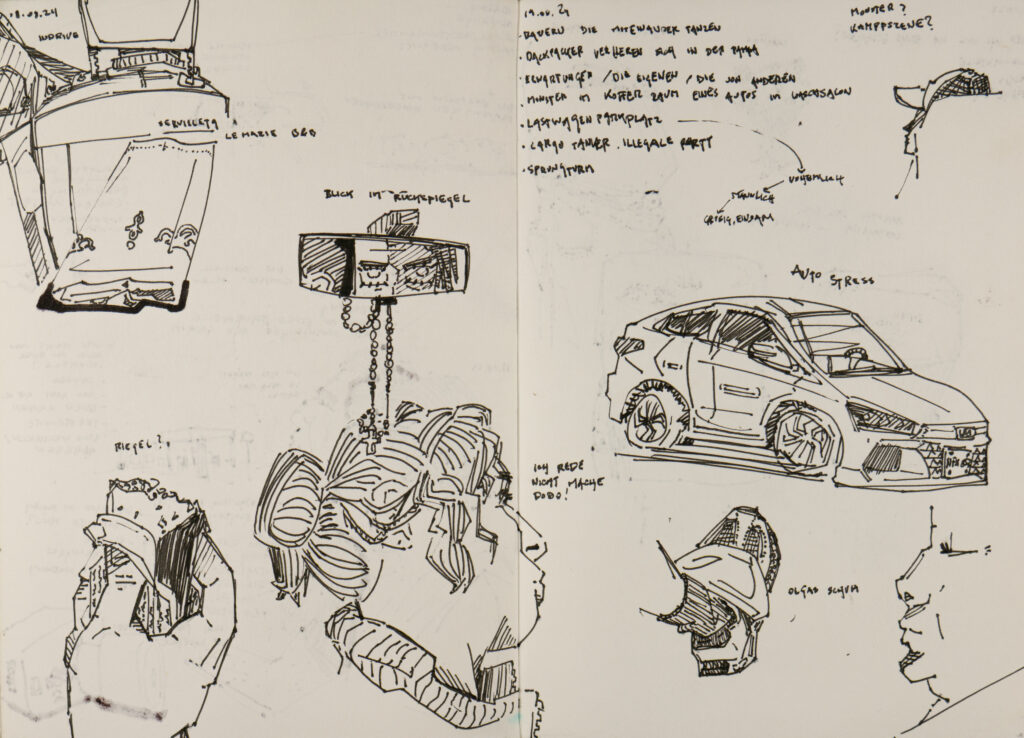 18.08.24
INDRIVE
SERVILLETA
LE MARIE BBB
BLICK IM RÜCKSPIEGEL
RIEGEL?
19.08.24
· BAUERN DIE MITEINANDER TANZEN
· BACKPACKER VERLIEREN SICH IN DER PAMPA
· ERWARTUNGEN / DIE EIGENEN / DIE VON ANDEREN
· MONSTER IM KOFFERRAUM EINES AUTOS IM
· LASTWAGEN PARKPLATZ
· CARGO TANKER, ILLEGALE PARTY
· SPRUNGTURM
MÄNNLICH
EINSAM
MONSTER?
KAMPFSZENE?
AUTO STRESS
ICH REDE
NICHT MACHE
DODO!
OLGAS SCHUH